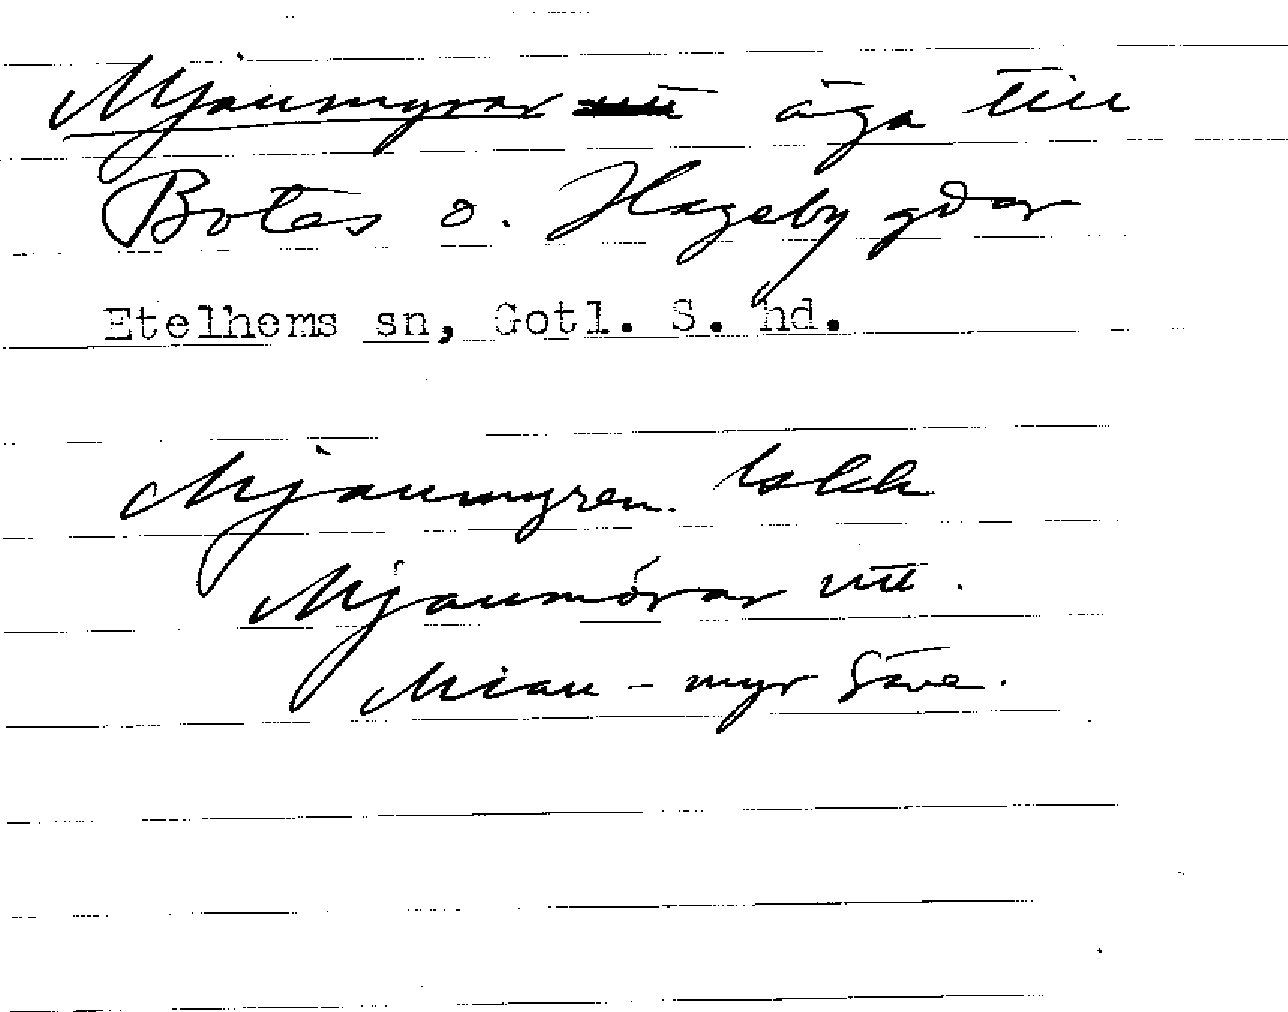 Mjaumyrar äga till
Botes o. Hageby gdar
Etelhems sn, Gotl. S. hd.
Mjaumyren.
Mjaumörar utt.
Miau-myr Säve.